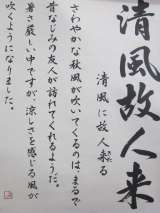 清風故人来
清風に故人来る
さわやかな秋風が吹いてくるのは、まるで
昔なじみの友人が訪れてくれるようだ。
暑さ厳しい中ですが、涼しさを感じる風が
吹くようになりました。